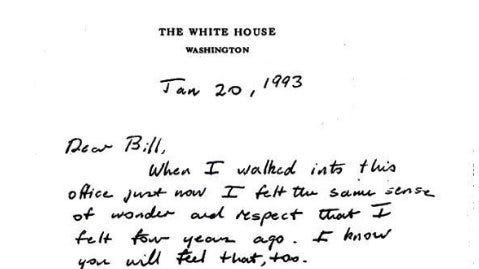 THE WHITE HOUSE
WASHINGTON
Jan 20, 1993
Dear Bill,
When I walked into this
office just now I felt the same sense
of wonder and respect that I
felt four years ago. I know
you will feel that, too.